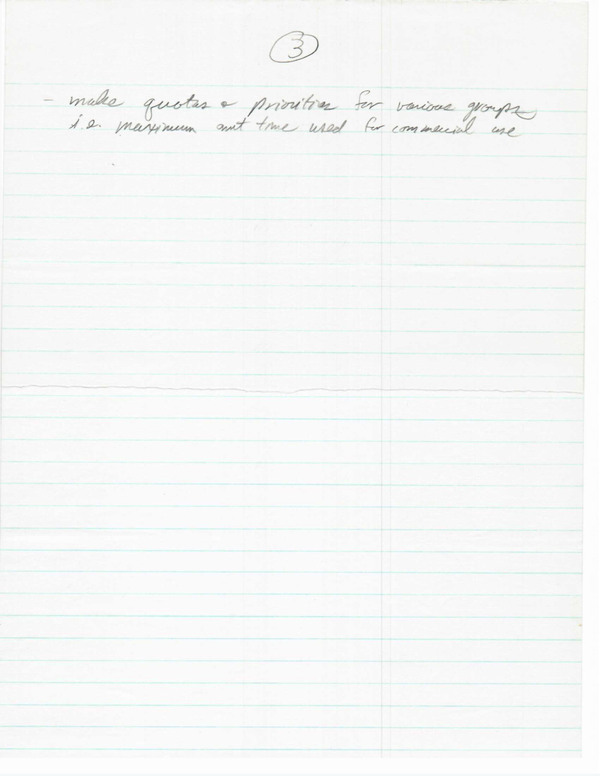 3
- make quotas & priorities for various groups
i.e. maximum amt time used for commercial use